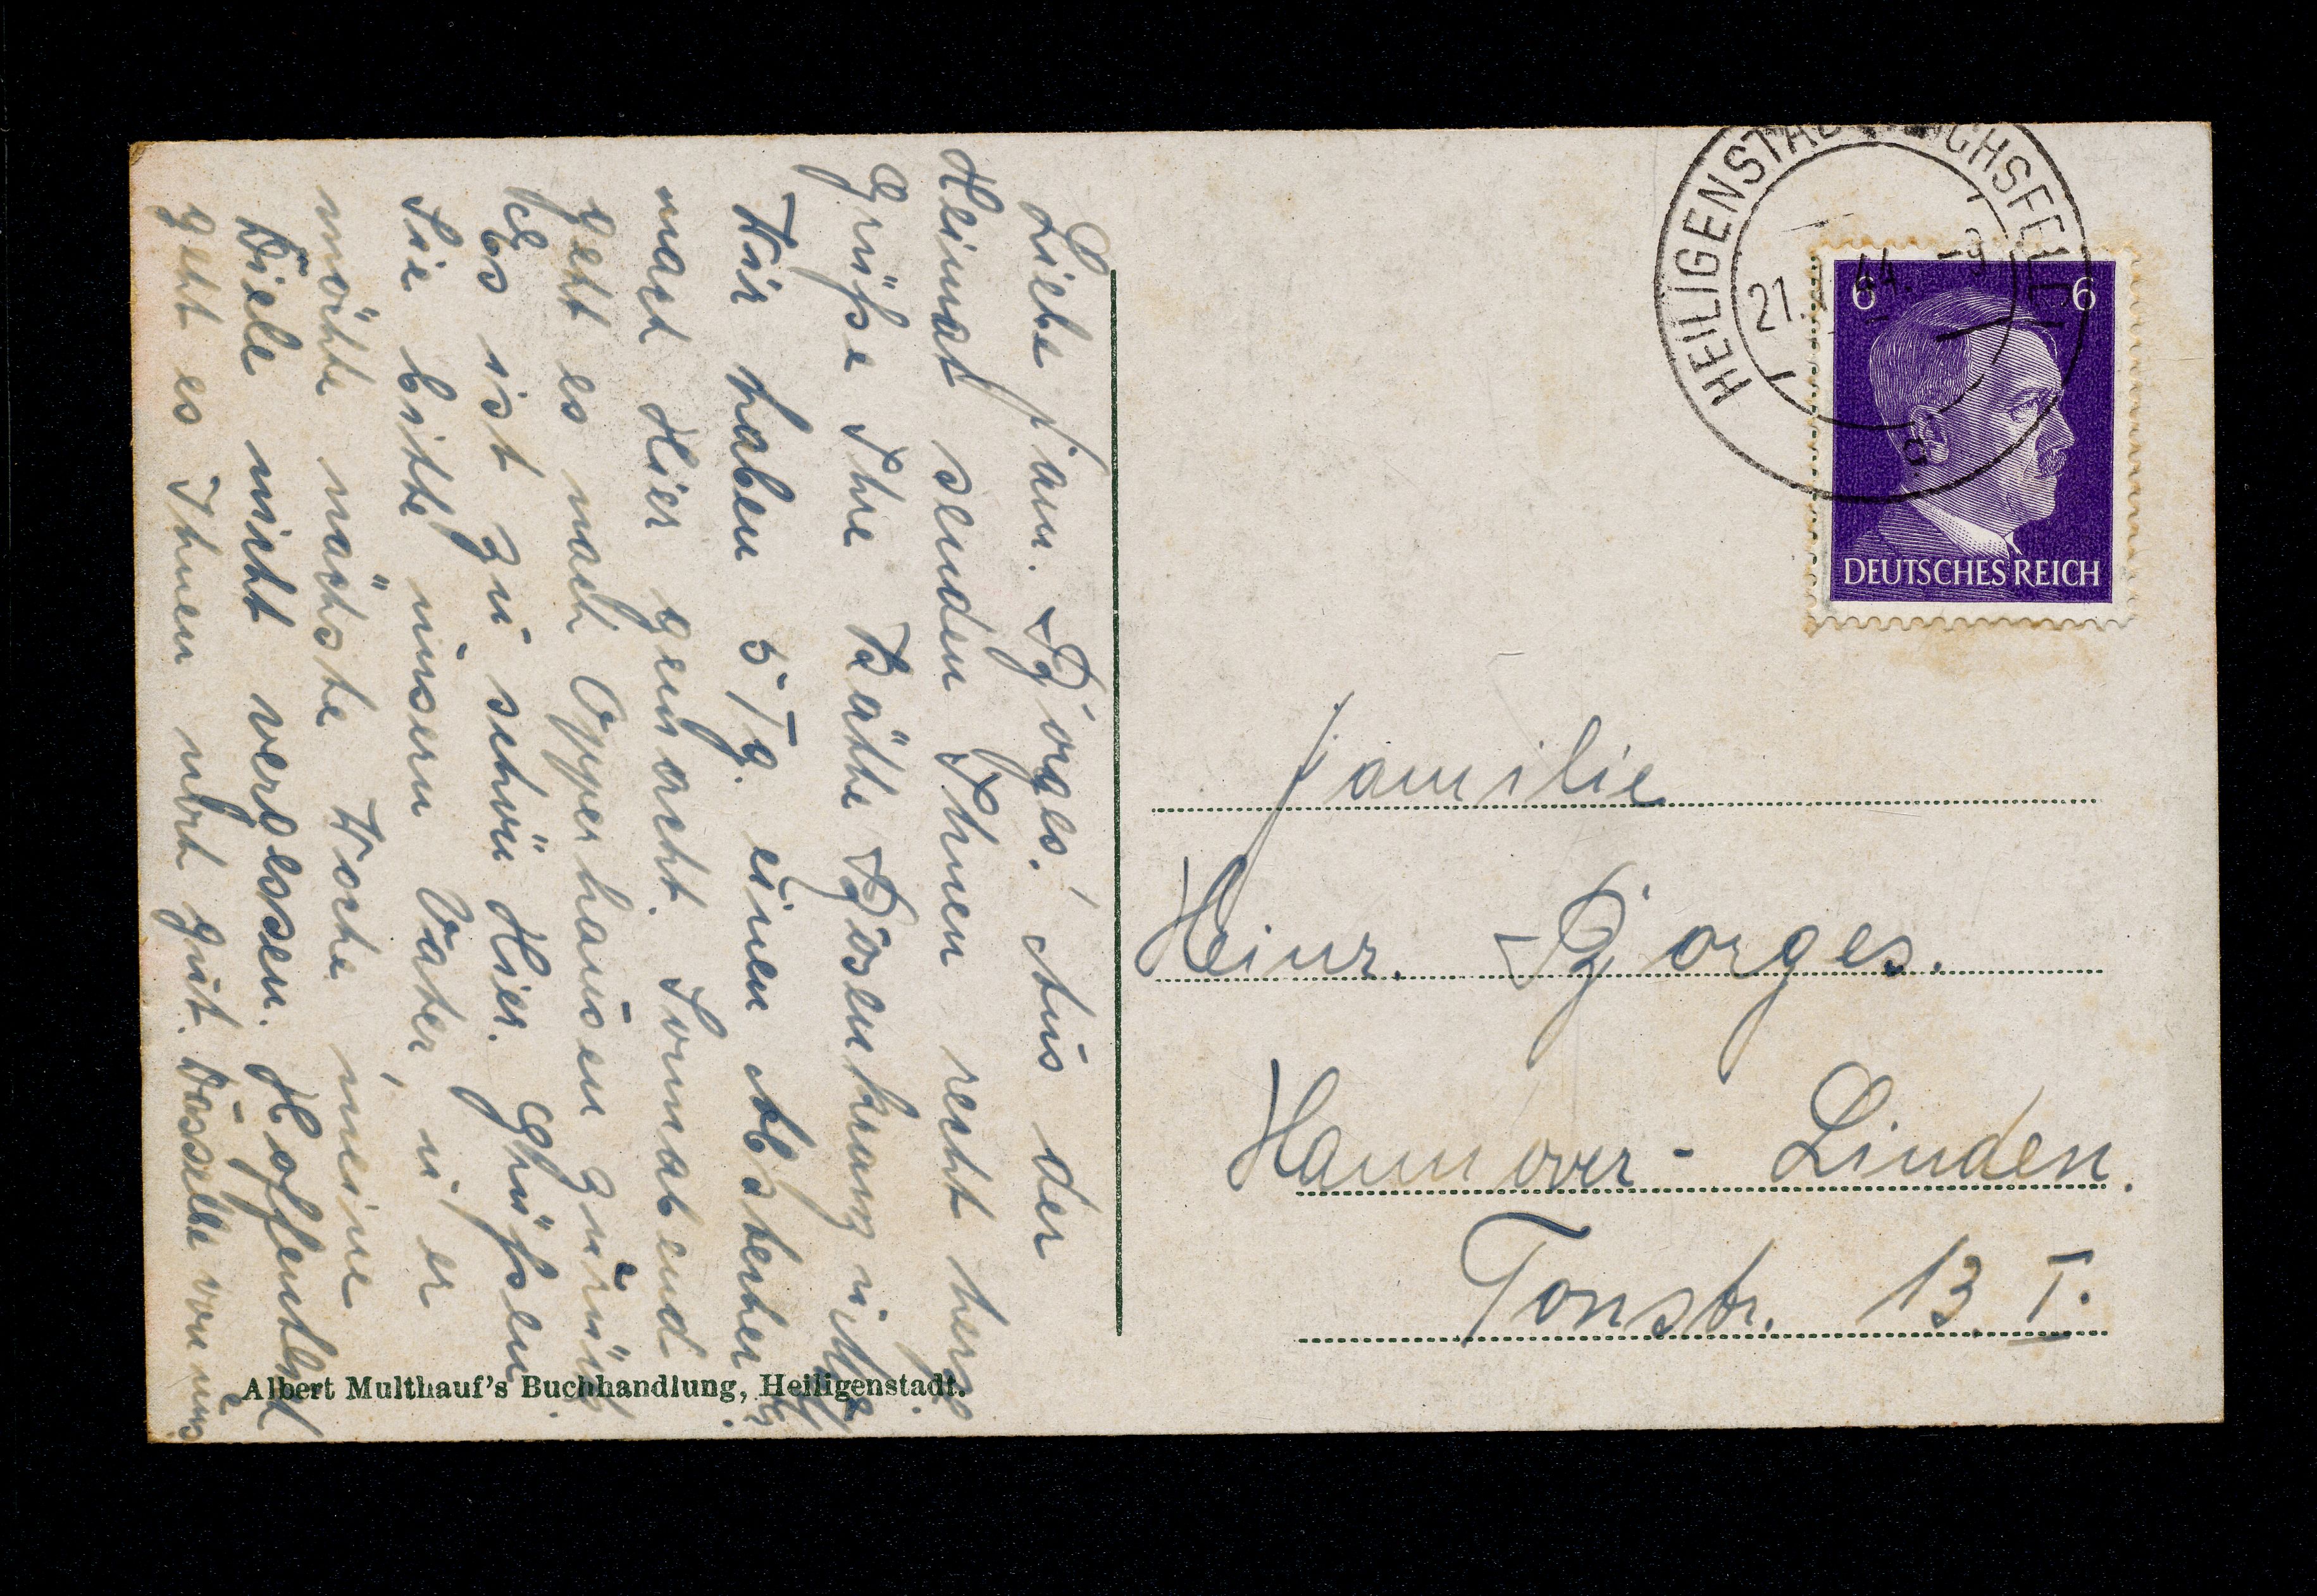 Liebe Fam. Djorges! Aus der
Heimat senden Ihnen recht herz.
Grüße Ihre Käthe
Wir haben 5 Tg. einen Abstecher
nach Hier gemacht. Sonnabend
geht es nach Opperhausen zurück
Es ist zu schön Hier. Grüßen
Sie bitte unsern Vater, u. er
möchte nächste Woche meine
Diele nicht vergessen. Hoffentlich
geht es Ihnen noch gut. Dasselbe von uns
Albert Multhauf's Buchhandlung, Heiligenstadt.
HEILIGENSTADT EICHSFELD
21. 44. -9
6 6
DEUTSCHES REICH
Familie
Heinr. Djorges.
Hannover - Linden.
Tonstr. 13 I.